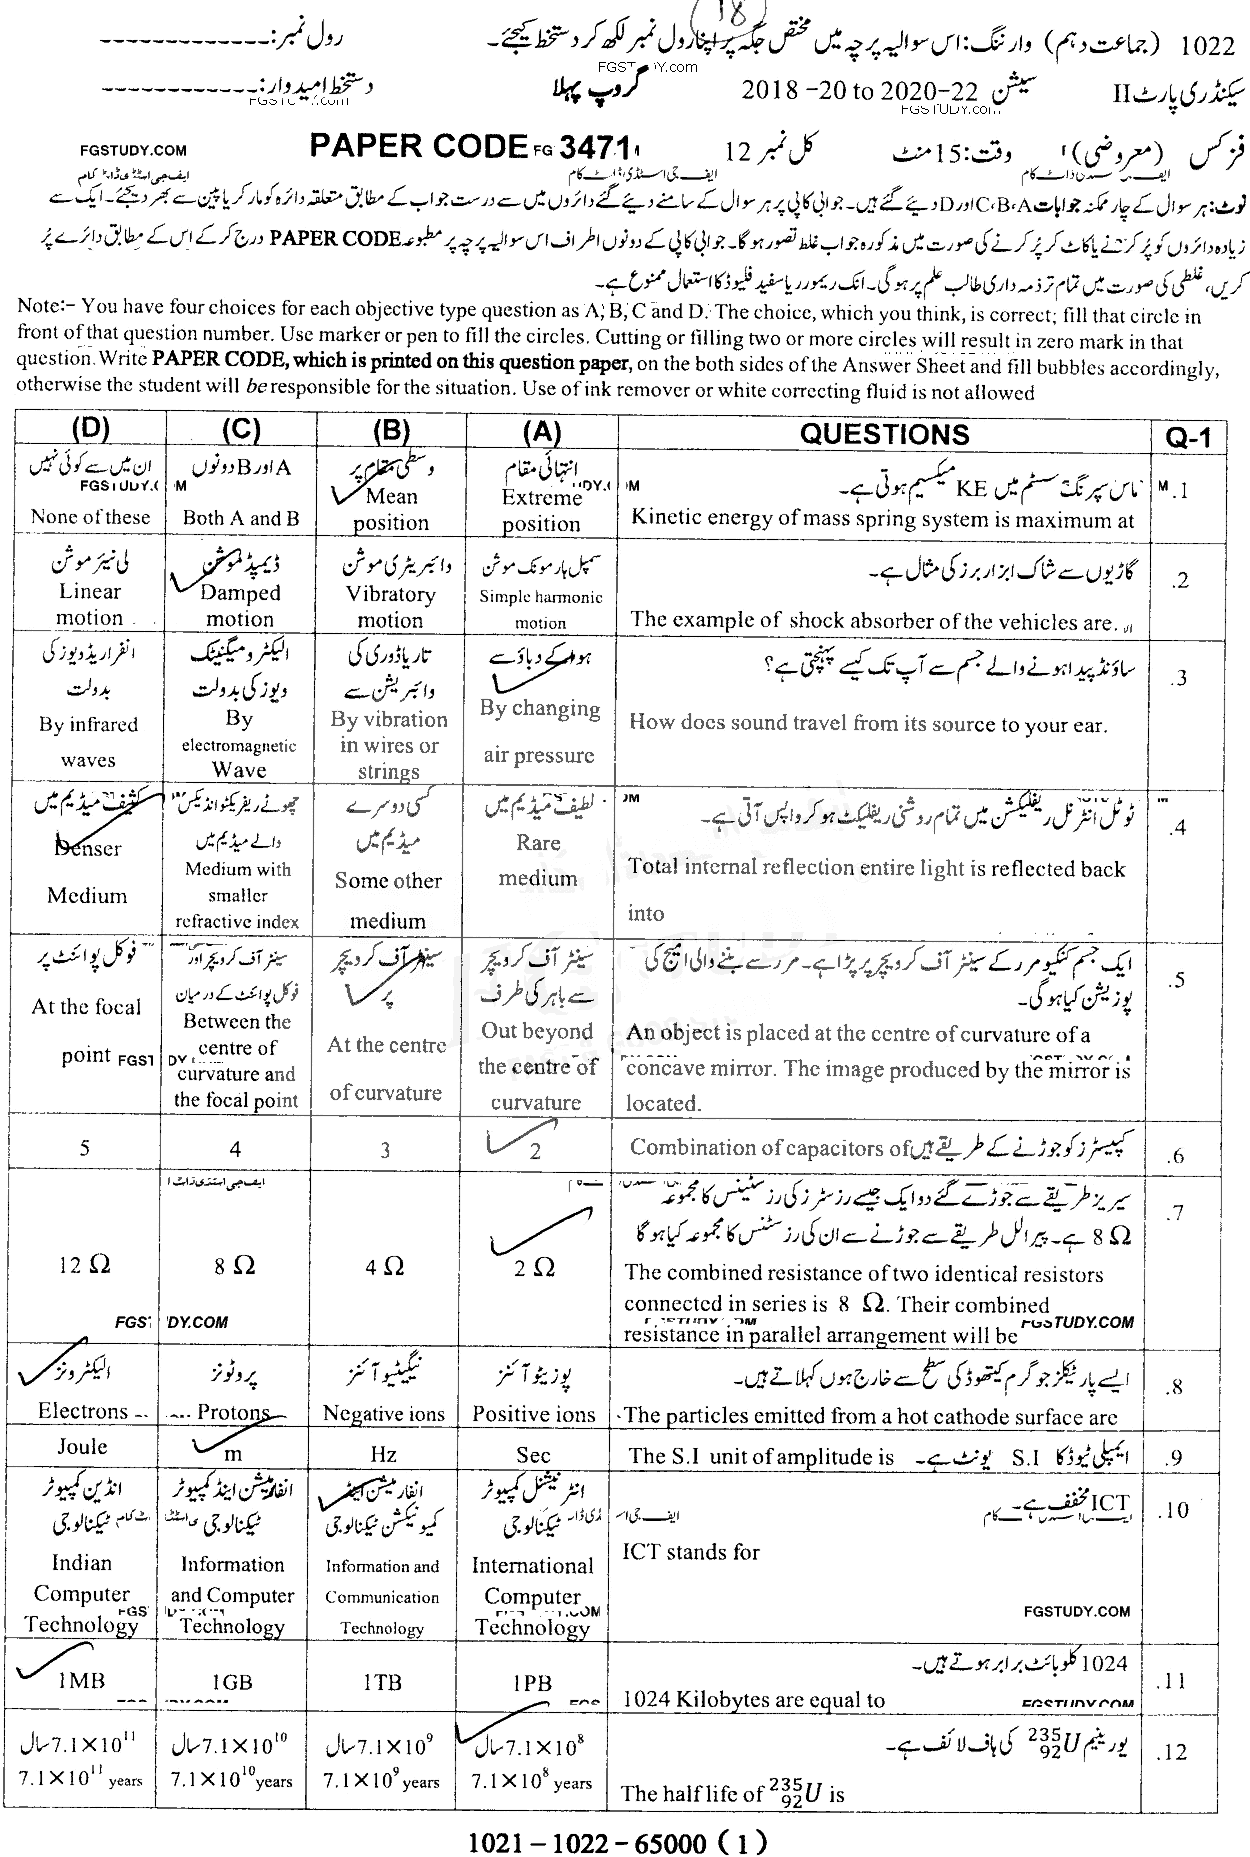 18
1022 (جماعت دہم) وارننگ: اس سوالیہ پرچہ میں مختص جگہ پر اپنا رول نمبر لکھ کر دستخط کیجئے۔ رول نمبر:-------------
FGSTUDY.com
سیکنڈری پارٹ II سیشن 2018 -20 to 2020-22 گروپ پہلا دستخط امیدوار:------------
FGSTUDY.com FGSTUDY.com
فزکس (معروضی) وقت: 15 منٹ کل نمبر 12 PAPER CODE FG 3471 FGSTUDY.COM
ایف جی اسٹڈی ڈاٹ کام ایف جی اسٹڈی ڈاٹ کام
نوٹ: ہر سوال کے چار ممکنہ جوابات C،B،A اور D دیئے گئے ہیں۔ جوابی کاپی پر ہر سوال کے سامنے دیئے گئے دائروں میں سے درست جواب کے مطابق متعلقہ دائرہ کو مارکر یا پین سے بھر دیجئے۔ ایک سے
زیادہ دائروں کو پُر کرنے یا کاٹ کر پُر کرنے کی صورت میں مذکورہ جواب غلط تصور ہوگا۔ جوابی کاپی کے دونوں اطراف اس سوالیہ پرچہ پر مطبوعہ PAPER CODE درج کر کے اس کے مطابق دائرے پُر
کریں، غلطی کی صورت میں تمام تر ذمہ داری طالب علم پر ہوگی۔ انک ریموور یا سفید فلیوڈ کا استعمال ممنوع ہے۔
Note:- You have four choices for each objective type question as A, B, C and D. The choice, which you think, is correct; fill that circle in
front of that question number. Use marker or pen to fill the circles. Cutting or filling two or more circles will result in zero mark in that
question. Write PAPER CODE, which is printed on this question paper, on the both sides of the Answer Sheet and fill bubbles accordingly,
otherwise the student will be responsible for the situation. Use of ink remover or white correcting fluid is not allowed
(D) (C) (B) (A) QUESTIONS Q-1
ان میں سے کوئی نہیں A اور B دونوں وسطی مقام پر انتہائی مقام ماس سپرنگ سسٹم میں KE میکسیمم ہوتی ہے۔ .1
None of these Both A and B Mean position Extreme position Kinetic energy of mass spring system is maximum at
لی نیئر موشن ڈیمپڈ موشن وائبریٹری موشن سمپل ہارمونک موشن گاڑیوں سے شاک ابزاربرز کی مثال ہے۔ .2
Linear motion Damped motion Vibratory motion Simple harmonic motion The example of shock absorber of the vehicles are.
انفراریڈ ویوز کی بدولت الیکٹرومیگنیٹک ویوز کی بدولت تار یا ڈوری کی وائبریشن سے ہوا کے دباؤ سے ساؤنڈ پیدا ہونے والے جسم سے آپ تک کیسے پہنچتی ہے؟ .3
By infrared waves By electromagnetic Wave By vibration in wires or strings By changing air pressure How does sound travel from its source to your ear.
کثیف میڈیم میں چھوٹے ریفریکٹو انڈیکس والے میڈیم میں کسی دوسرے میڈیم میں لطیف میڈیم میں ٹوٹل انٹرنل ریفلیکشن میں تمام روشنی ریفلیکٹ ہو کر واپس آتی ہے۔ .4
Denser Medium Medium with smaller refractive index Some other medium Rare medium Total internal reflection entire light is reflected back
into
فوکل پوائنٹ پر سینٹر آف کرویچر اور فوکل پوائنٹ کے درمیان سینٹر آف کرویچر پر سینٹر آف کرویچر سے باہر کی طرف ایک جسم کنکیو مرر کے سینٹر آف کرویچر پر پڑا ہے۔ مرر سے بننے والی امیج کی .5
پوزیشن کیا ہوگی۔
At the focal point Between the centre of curvature and the focal point At the centre of curvature Out beyond the centre of curvature An object is placed at the centre of curvature of a
concave mirror. The image produced by the mirror is
located.
5 4 3 2 Combination of capacitors of کپیسٹرز کو جوڑنے کے طریقے ہیں .6
سیریز طریقے سے جوڑے گئے دو ایک جیسے رزسٹرز کی رزسٹینس کا مجموعہ .7
8 Ω ہے۔ پیرالل طریقے سے جوڑنے سے ان کی رزسٹنس کا مجموعہ کیا ہوگا
12 Ω 8 Ω 4 Ω 2 Ω The combined resistance of two identical resistors
connected in series is 8 Ω. Their combined
resistance in parallel arrangement will be
FGSTUDY.COM FGSTUDY.COM
الیکٹرونز پروٹونز نیگیٹیو آئنز پوزیٹو آئنز ایسے پارٹیکلز جو گرم کیتھوڈ کی سطح سے خارج ہوں کہلاتے ہیں۔ .8
Electrons Protons Negative ions Positive ions The particles emitted from a hot cathode surface are
Joule m Hz Sec The S.I unit of amplitude is ایمپلی ٹیوڈ کا S.I یونٹ ہے۔ .9
انڈین کمپیوٹر ٹیکنالوجی انفارمیشن اینڈ کمپیوٹر ٹیکنالوجی انفارمیشن اینڈ کمیونیکشن ٹیکنالوجی انٹرنیشنل کمپیوٹر ٹیکنالوجی ICT مخفف ہے۔ .10
Indian Computer Technology Information and Computer Technology Information and Communication Technology International Computer Technology ICT stands for
FGSTUDY.COM
1024 کلو بائٹ برابر ہوتے ہیں۔ .11
1MB 1GB 1TB 1PB 1024 Kilobytes are equal to
FGSTUDY.COM
7.1×10¹¹ سال 7.1×10¹⁰ سال 7.1×10⁹ سال 7.1×10⁸ سال یورینیم ²³⁵₉₂U کی ہاف لائف ہے۔ .12
7.1×10¹¹ years 7.1×10¹⁰ years 7.1×10⁹ years 7.1×10⁸ years The half life of ²³⁵₉₂U is
1021 – 1022 – 65000 ( 1 )